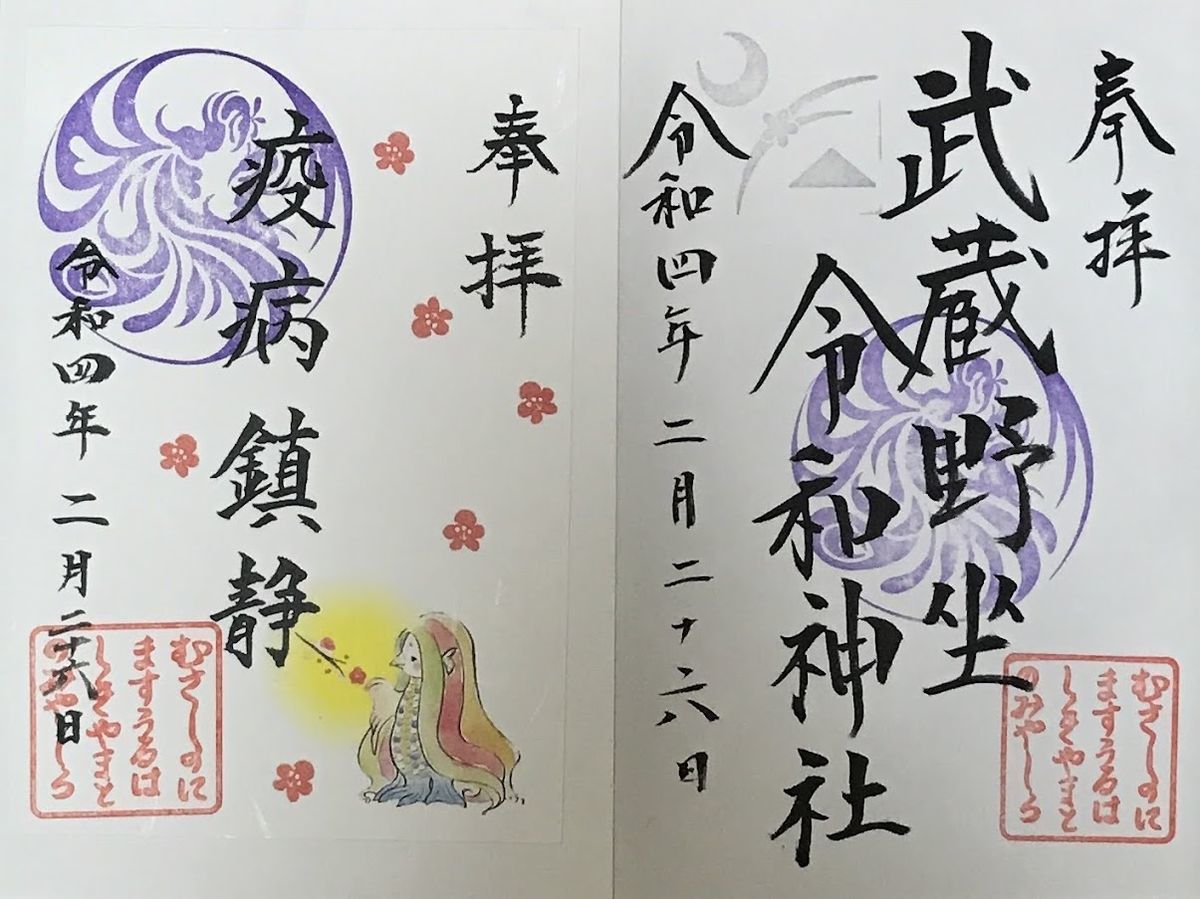 奉拝
武蔵野坐
令和神社
令和四年二月二十六日
むさしのに
ますうるは
しきやまと
のみやしろ
奉拝
疫病鎮静
令和四年二月二十六日
むさしのに
ますうるは
しきやまと
のみやしろ